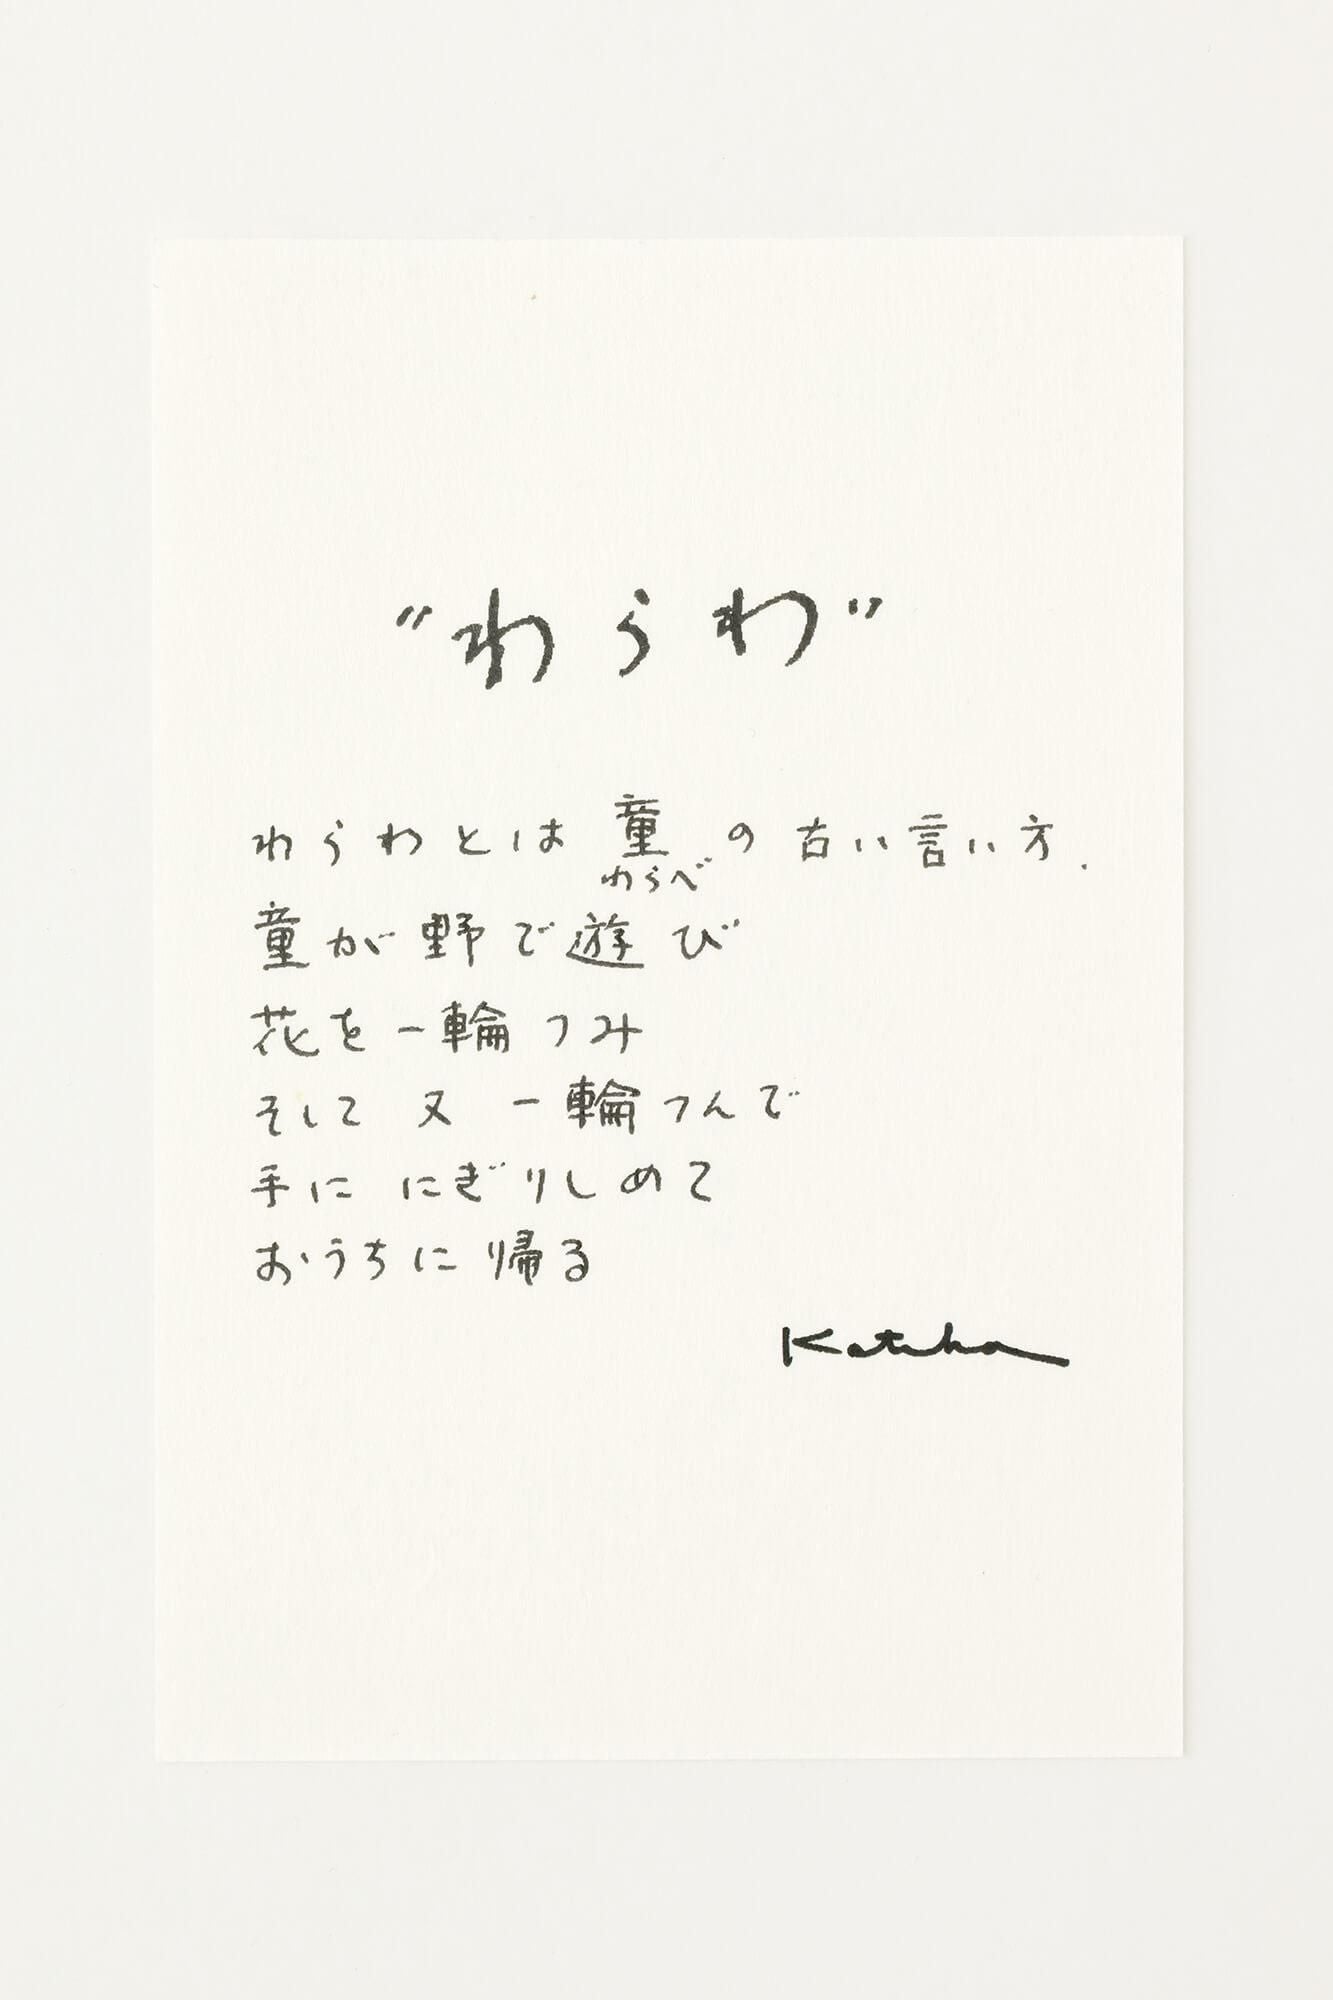 "わらわ"
わらわとは 童 の 古い言い方.
わらべ
童が野で遊び
花を一輪つみ
そして 又 一輪つんで
手に にぎりしめて
おうちに帰る